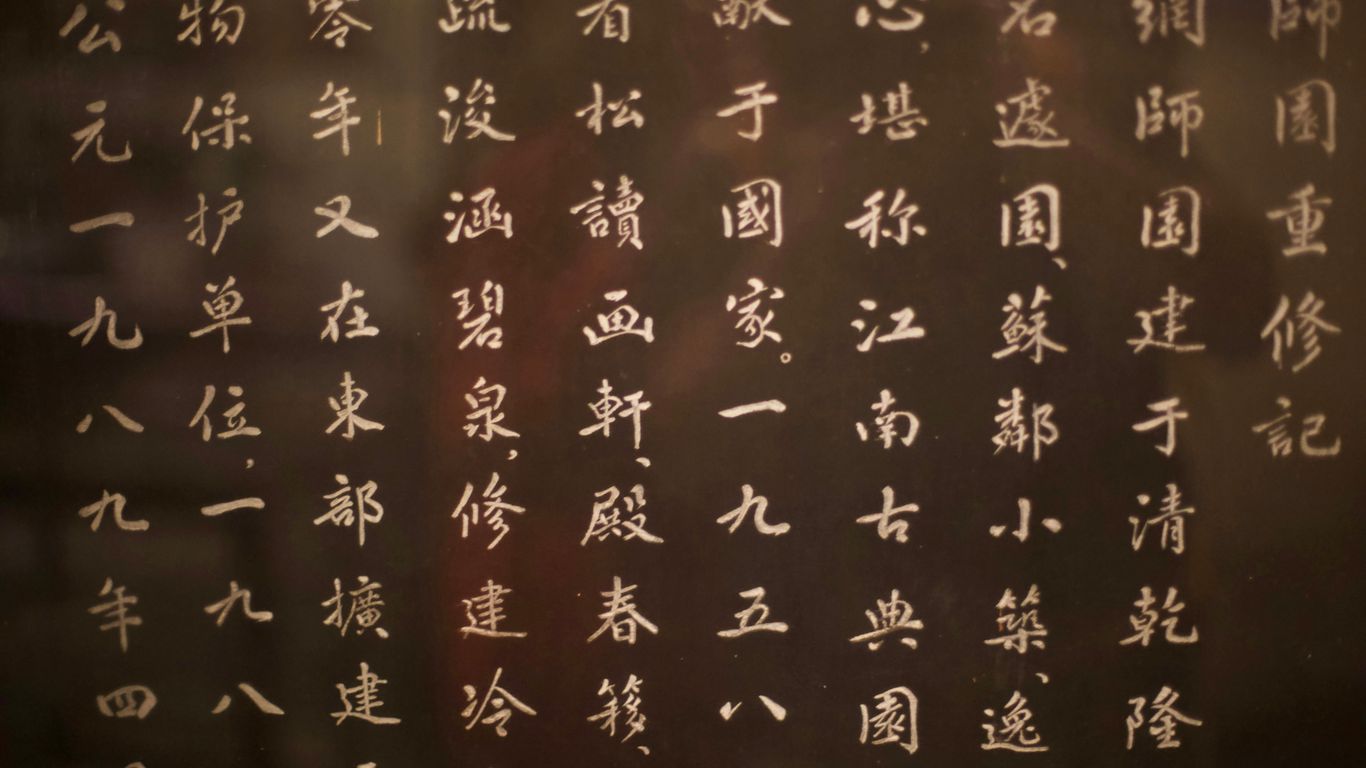 師園重修記
網師園建于清乾隆
名遽園、蘇鄰小築、逸
心，堪称江南古典園
献于國家。一九五八
看松讀画軒、殿春簃、
疏浚涵碧泉，修建冷
零年又在東部擴建
物保护单位，一九八
公元一九八九年四